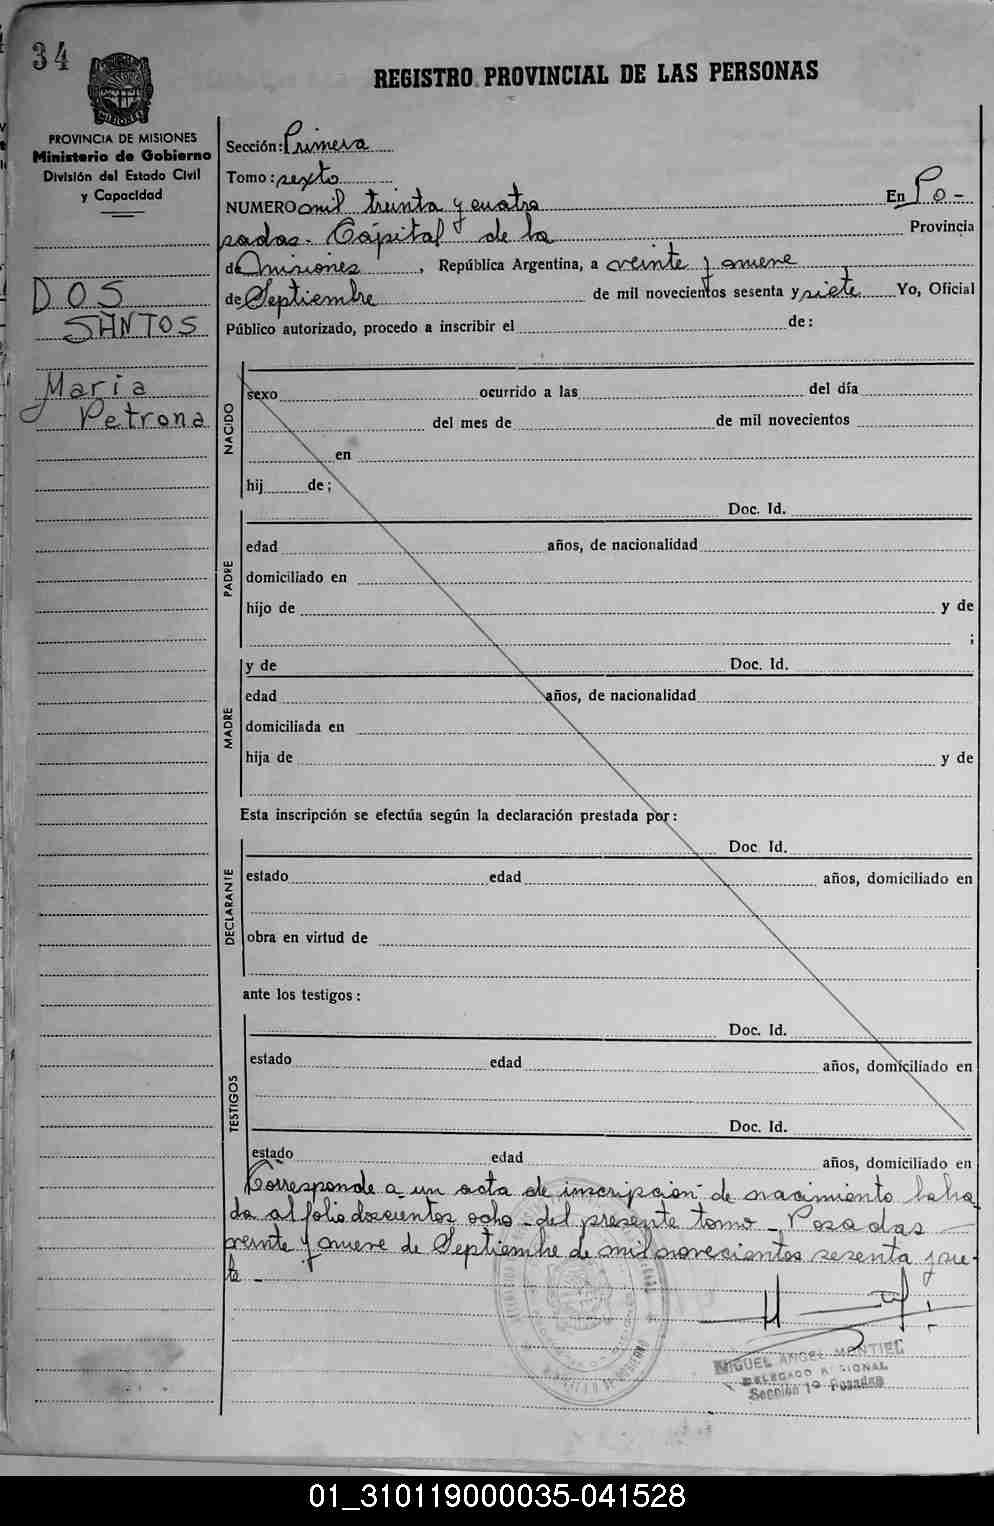 34
REGISTRO PROVINCIAL DE LAS PERSONAS
PROVINCIA DE MISIONES
Ministerio de Gobierno
División del Estado Civil
y Capacidad
DOS
SANTOS
Maria
Petrona
Sección: Primera
Tomo: sexto
NUMERO mil treinta y cuatro En Po-
sadas - Capital de la Provincia
de Misiones, República Argentina, a veinte y nueve
de Septiembre de mil novecientos sesenta y siete Yo, Oficial
Público autorizado, procedo a inscribir el de:
NACIDO
sexo ocurrido a las del día
del mes de de mil novecientos
en
hij de;
Doc. Id.
PADRE
edad años, de nacionalidad
domiciliado en
hijo de y de
;
MADRE
y de Doc. Id.
edad años, de nacionalidad
domiciliada en
hija de y de
Esta inscripción se efectúa según la declaración prestada por:
DECLARANTE
Doc. Id.
estado edad años, domiciliado en
obra en virtud de
ante los testigos:
TESTIGOS
Doc. Id.
estado edad años, domiciliado en
Doc. Id.
estado edad años, domiciliado en
Corresponde a un acta de inscripción de nacimiento labra
da al folio doscientos ocho - del presente tomo - Posadas
veinte y nueve de Septiembre de mil novecientos sesenta y sie-
te -
MIGUEL ANGEL MONTIEL
DELEGADO REGIONAL
Sección 1º Posadas
01_310119000035-041528